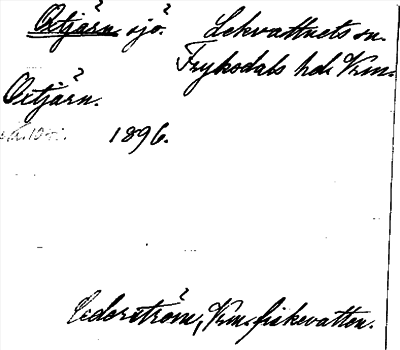 Oxtjärn. sjö. Lekvattnets sn.
Fryksdals hd. Vrm.
Oxtjärn.
1896.
Cederström, Vrm. fiskevatten.